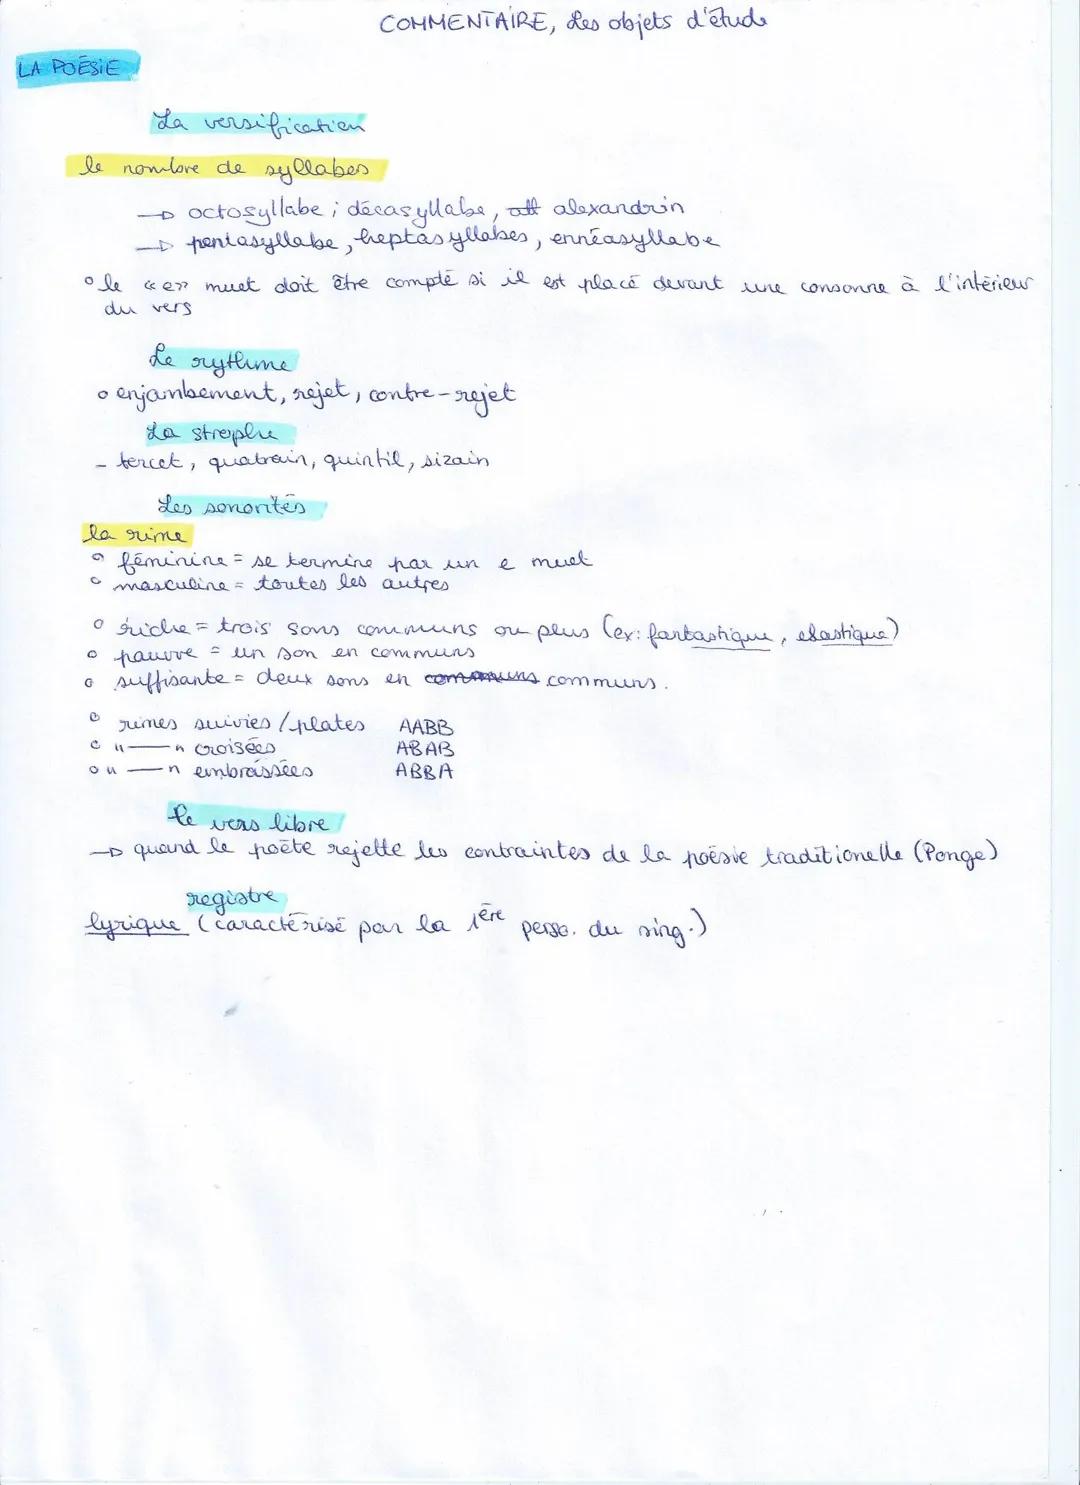 COMMENTAIRE, Les objets d'étude
LA POÉSIE
La versification
le nombre de syllabes
→ octosyllabe ; décasyllabe, alexandrin
→ pentasyllabe, heptasyllabes, ennéasyllabe
° le «e» muet doit être compté si il est placé devant une consonne à l'intérieur
du vers
Le rythme
° enjambement, rejet, contre-rejet
La strophe
- tercet, quatrain, quintil, sizain
Les sonorités
la rime
° féminine = se termine par un e muet
° masculine = toutes les autres
° riche = trois sons communs ou plus (ex: fantastique, elastique)
° pauvre = un son en communs
° suffisante = deux sons en communs communs.
° rimes suivies / plates AABB
° " — " croisées ABAB
° " — " embrassées ABBA
le vers libre
→ quand le poète rejette les contraintes de la poésie traditionelle (Ponge)
registre
lyrique (caractérisé par la 1ère perso. du sing.)